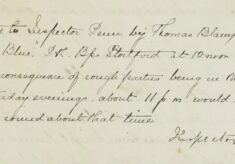 to Inspector Penn by Thomas
Blue", P.H. Bps Stortford at 10
consequence of rough parties being in th
day evenings about 11 p m would
round about that time
Inspector